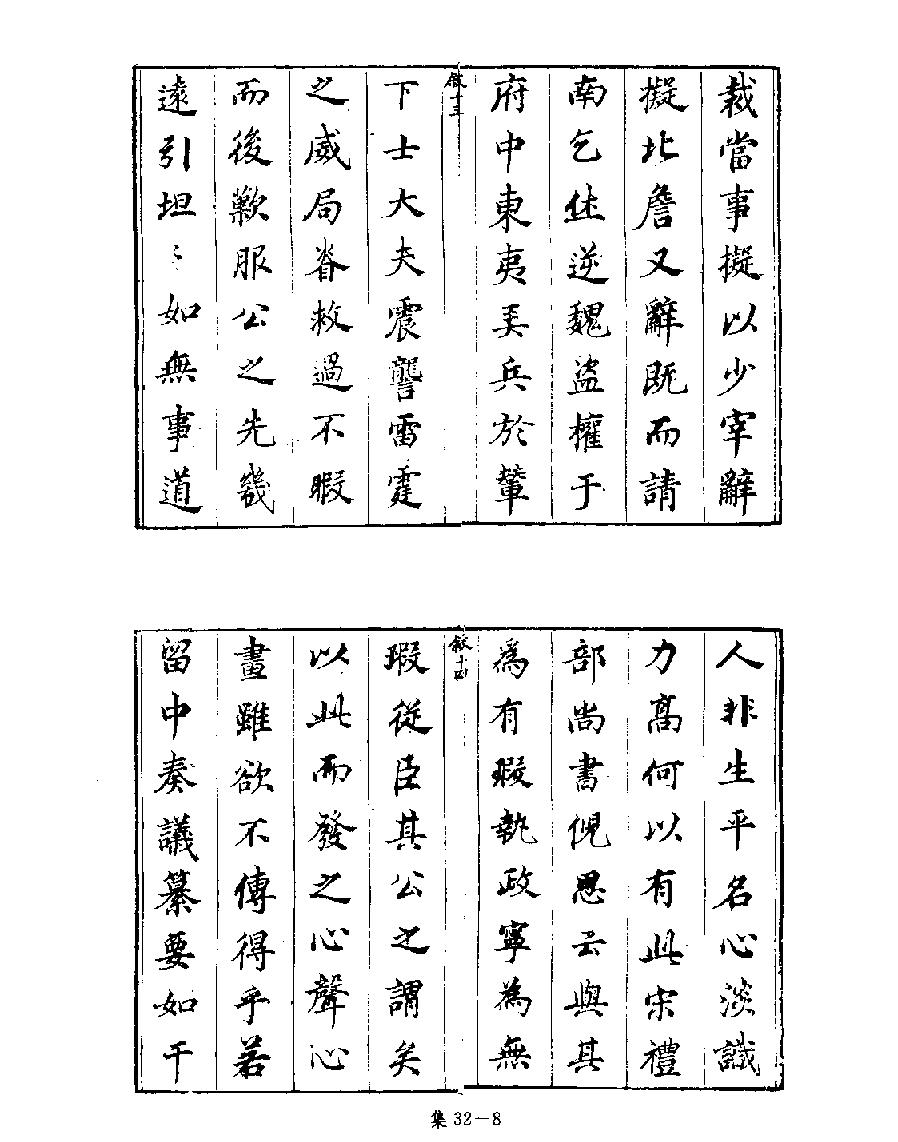 裁當事擬以少宰辭
擬北詹又辭既而請
南乞休逆魏盜權于
府中東夷弄兵於輦
敘十三
下士大夫震讋雷霆
之威局脊救過不暇
而後歎服公之先幾
遠引坦〻如無事道
人非生平名心淡識
力高何以有此宋禮
部尚書倪思云與其
為有瑕執政寧為無
敘十四
瑕從臣其公之謂矣
以此而發之心聲心
畫雖欲不傳得乎若
留中奏議纂要如干
集 32－8